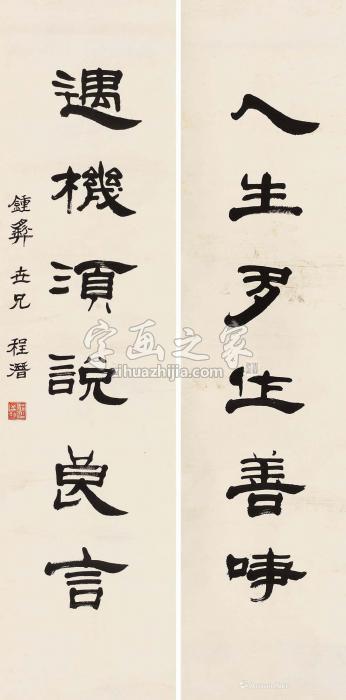 人生多作善事
遇機須說良言
鍾彝世兄 程潛
字画之家
zihuazhijia.com